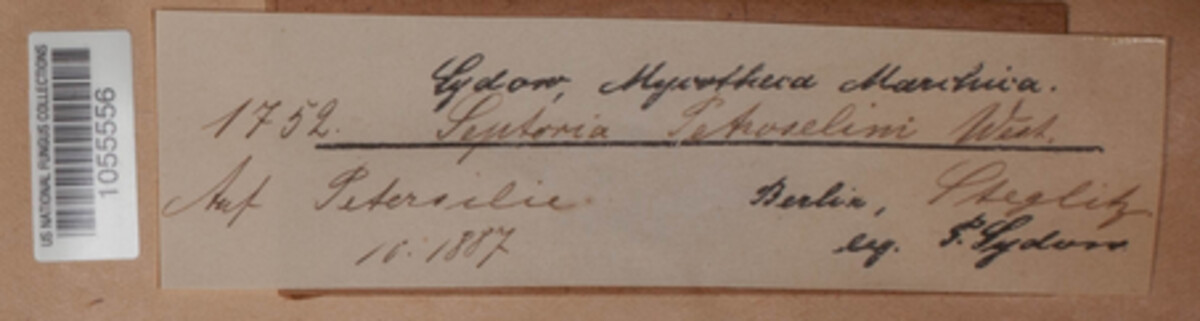 US NATIONAL FUNGUS COLLECTIONS
1055556
Sydow, Mycotheca Marchica.
1752. Septoria Petroselini West.
Auf Petersilie Berlin, Steglitz
10. 1887 leg. P. Sydow